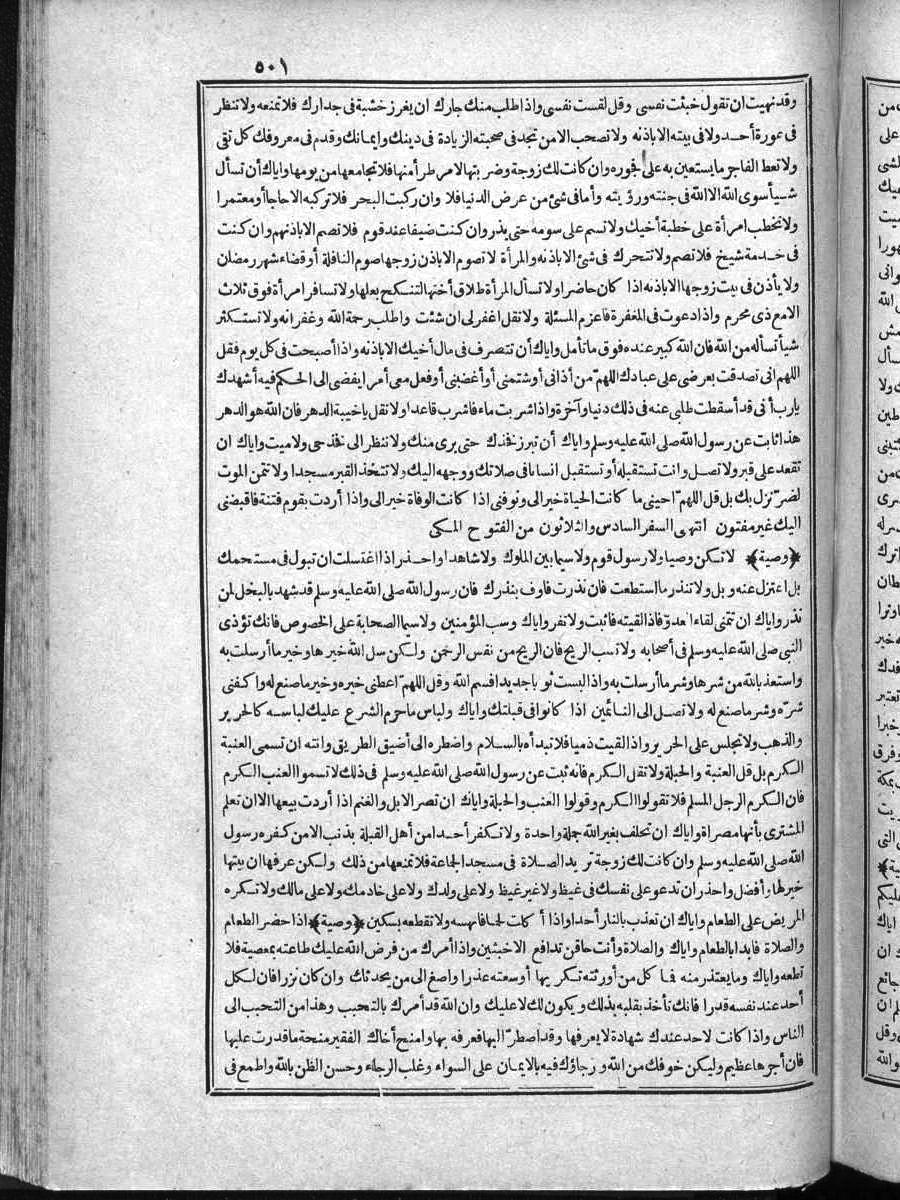 ٥٠١
وقد نهيت ان تقول خبثت نفسى وقل لقست نفسى واذا طلب منك جارك ان يغرز خشبة فى جدارك فلا تمنعه ولا تنظر
فى عورة أحد ولا فى بيته الا باذنه ولا تصحب الا من تجد فى صحبته الزيادة فى دينك وايمانك وقدم فى معروفك كل تقى
ولا تعط الفاجر ما يستعين به على فجوره وان كانت لك زوجة وضربتها لامر طرأ منها فلا تجامعها من يومها واياك أن تسأل
شيأ سوى الله الا الله فى جنته ورؤيته وأما فى شئ من عرض الدنيا فلا وان ركبت البحر فلا تركبه الا حاجا أو معتمرا
ولا تخطب امرأة على خطبة أخيك ولا تسم على سومه حتى يذر وان كنت ضيفا عند قوم فلا تصم الا باذنهم وان كنت
فى خدمة شيخ فلا تصم ولا تتحرك فى شئ الا باذنه والمرأة لا تصوم الا باذن زوجها صوم النافلة أو قضاء شهر رمضان
ولا يأذن فى بيت زوجها الا باذنه اذا كان حاضرا ولا تسأل المرأة طلاق أختها لتنكح بعلها ولا تسافر امرأة فوق ثلاث
الا مع ذى محرم واذا دعوت فى المغفرة فاعزم المسئلة ولا تقل اغفر لى ان شئت واطلب رحمة الله وغفرانه ولا تستكثر
شيأ تسأله من الله فان الله كبير عنده فوق ما تأمل واياك أن تتصرف فى مال أخيك الا باذنه واذا أصبحت فى كل يوم فقل
اللهم انى تصدقت بعرضى على عبادك اللهم من أذانى أو شتمنى أو أغضبنى أو فعل معى أمرا يفضى الى الحكم فيه أشهدك
يارب أنى قد أسقطت طلبى عنه فى ذلك دنيا وآخرة واذا شربت ماء فاشرب قاعدا ولا تقل يا خيبة الدهر فان الله هو الدهر
هذا ثابت عن رسول الله صلى الله عليه وسلم واياك أن تبرز فخذك حتى يرى منك ولا تنظر الى فخذ حى ولا ميت واياك ان
تقعد على قبر ولا تصل وانت تستقبله أو تستقبل انسانا فى صلاتك ووجهه اليك ولا تتخذ القبر مسجدا ولا تتمن الموت
لضر نزل بك بل قل اللهم احينى ما كانت الحياة خير الى وتوفنى اذا كانت الوفاة خير الى واذا أردت بقوم فتنة فاقبضنى
اليك غير مفتون انتهى السفر السادس والثلاثون من الفتوح المكى
﴿وصية﴾ لا تكن وصيا ولا رسول قوم ولا سيما بين الملوك ولا شاهدا واحذر اذا اغتسلت ان تبول فى مستحمك
بل اعتزل عنه وبل ولا تنذر ما استطعت فان نذرت فاوف بنذرك فان رسول الله صلى الله عليه وسلم قد شهد بالبخل لمن
نذر واياك ان تتمنى لقاء العدو فاذا لقيته فاثبت ولا تفر واياك وسب المؤمنين ولا سيما الصحابة على الخصوص فانك تؤذى
النبى صلى الله عليه وسلم فى أصحابه ولا تسب الريح فان الريح من نفس الرحمن ولكن سل الله خيرها وخير ما أرسلت به
واستعذ بالله من شرها وشر ما أرسلت به واذا لبست ثوبا جديدا فسم الله وقل اللهم اعطنى خيره وخير ما صنع له واكفنى
شره وشر ما صنع له ولا تصل الى النائمين اذا كانوا فى قبلتك واياك ولباس ما حرم الشرع عليك لباسه كالحرير
والذهب ولا تجلس على الحرير واذا لقيت ذميا فلا تبدأه بالسلام واضطره الى أضيق الطريق وانته ان تسمى العنبة
الكرم بل قل العنبة والحبلة ولا تقل الكرم فانه ثبت عن رسول الله صلى الله عليه وسلم فى ذلك لا تسموا العنب الكرم
فان الكرم الرجل المسلم فلا تقولوا الكرم وقولوا العنب والحبلة واياك ان تصر الابل والغنم اذا أردت بيعها الا ان تعلم
المشترى بأنها مصراة واياك ان تحلف بغير الله جملة واحدة ولا تكفر أحدا من أهل القبلة بذنب الا من كفره رسول
الله صلى الله عليه وسلم وان كانت لك زوجة تريد الصلاة فى مسجد الجماعة فلا تمنعها من ذلك ولكن عرفها ان بيتها
خير لها وأفضل واحذر ان تدعو على نفسك فى غيظ ولا غير غيظ ولا على ولدك ولا على خادمك ولا على مالك ولا تكره
المريض على الطعام واياك ان تعذب بالنار أحدا واذا أكلت لحما فانهسه ولا تقطعه بسكين ﴿وصية﴾ اذا حضر الطعام
والصلاة فابدا بالطعام واياك والصلاة وأنت حاقن تدافع الاخبثين واذا أمرك من فرض الله عليك طاعته بمعصية فلا
تطعه واياك وما يعتذر منه فما كل من أورثته نكر يها أوسعته عذرا واصغ الى من يحدثك وان كان نزرا فان لكل
أحد عند نفسه قدرا فانك تأخذ بقلبه بذلك ويكون لك لا عليك وان الله قد أمرك بالتحبب وهذا من التحبب الى
الناس واذا كانت لاحد عندك شهادة لا يعرفها وقد اضطر اليها فعرفه بها وامنح أخاك الفقير منحة ما قدرت عليها
فان أجرها عظيم وليكن خوفك من الله ورجاؤك فيه بالايمان على السواء وغلب الرجاء وحسن الظن بالله واطمع فى